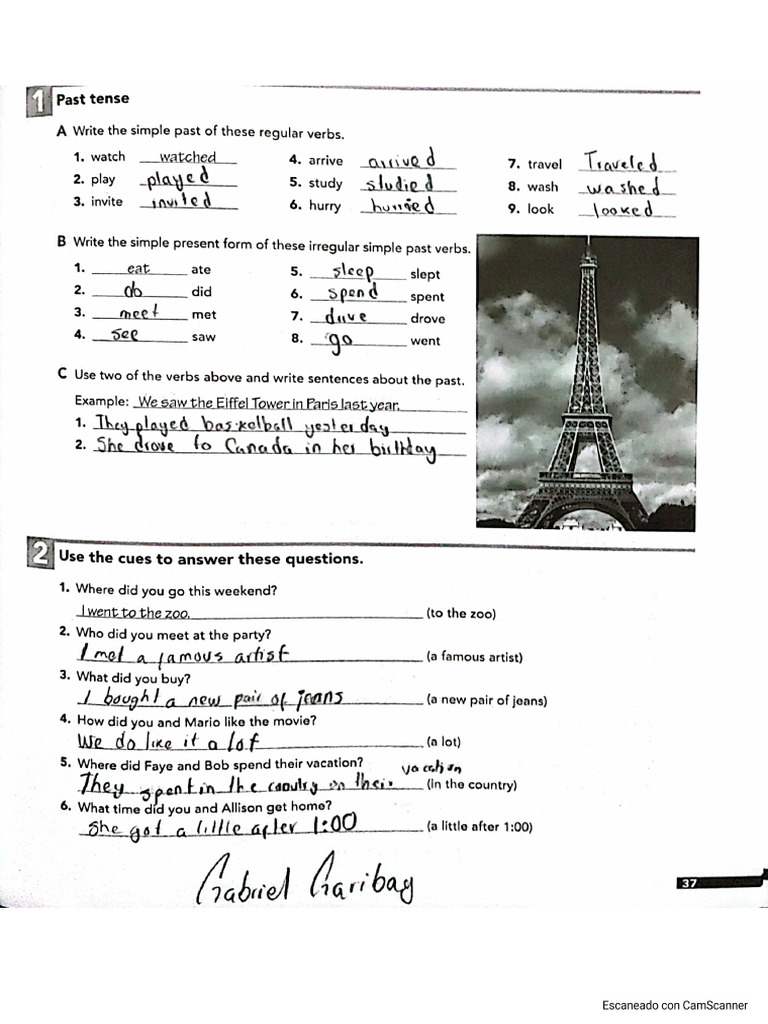 1 Past tense
A Write the simple past of these regular verbs.
1. watch watched
2. play played
3. invite invited
4. arrive arrived
5. study studied
6. hurry hurried
7. travel Traveled
8. wash washed
9. look looked
B Write the simple present form of these irregular simple past verbs.
1. eat ate
2. do did
3. meet met
4. see saw
5. sleep slept
6. spend spent
7. drive drove
8. go went
C Use two of the verbs above and write sentences about the past.
Example: We saw the Eiffel Tower in Paris last year.
1. They played basketball yesterday
2. She drove to Canada in her birthday
2 Use the cues to answer these questions.
1. Where did you go this weekend?
I went to the zoo. (to the zoo)
2. Who did you meet at the party?
I met a famous artist (a famous artist)
3. What did you buy?
I bought a new pair of jeans (a new pair of jeans)
4. How did you and Mario like the movie?
We do like it a lot (a lot)
5. Where did Faye and Bob spend their vacation?
They spent in the country on their vacation (in the country)
6. What time did you and Allison get home?
She got a little after 1:00 (a little after 1:00)
Gabriel Garibay
37
Escaneado con CamScanner